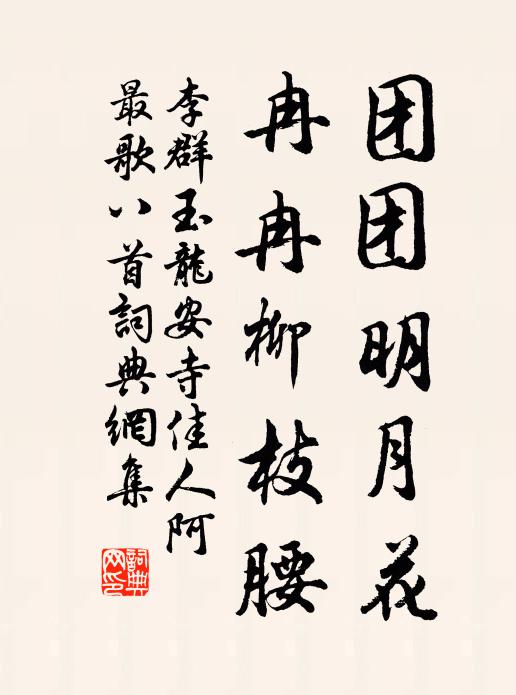 团团明月花
冉冉柳枝腰
李群玉龍安寺佳人阿
最歌八首詞典網集
詞典网印